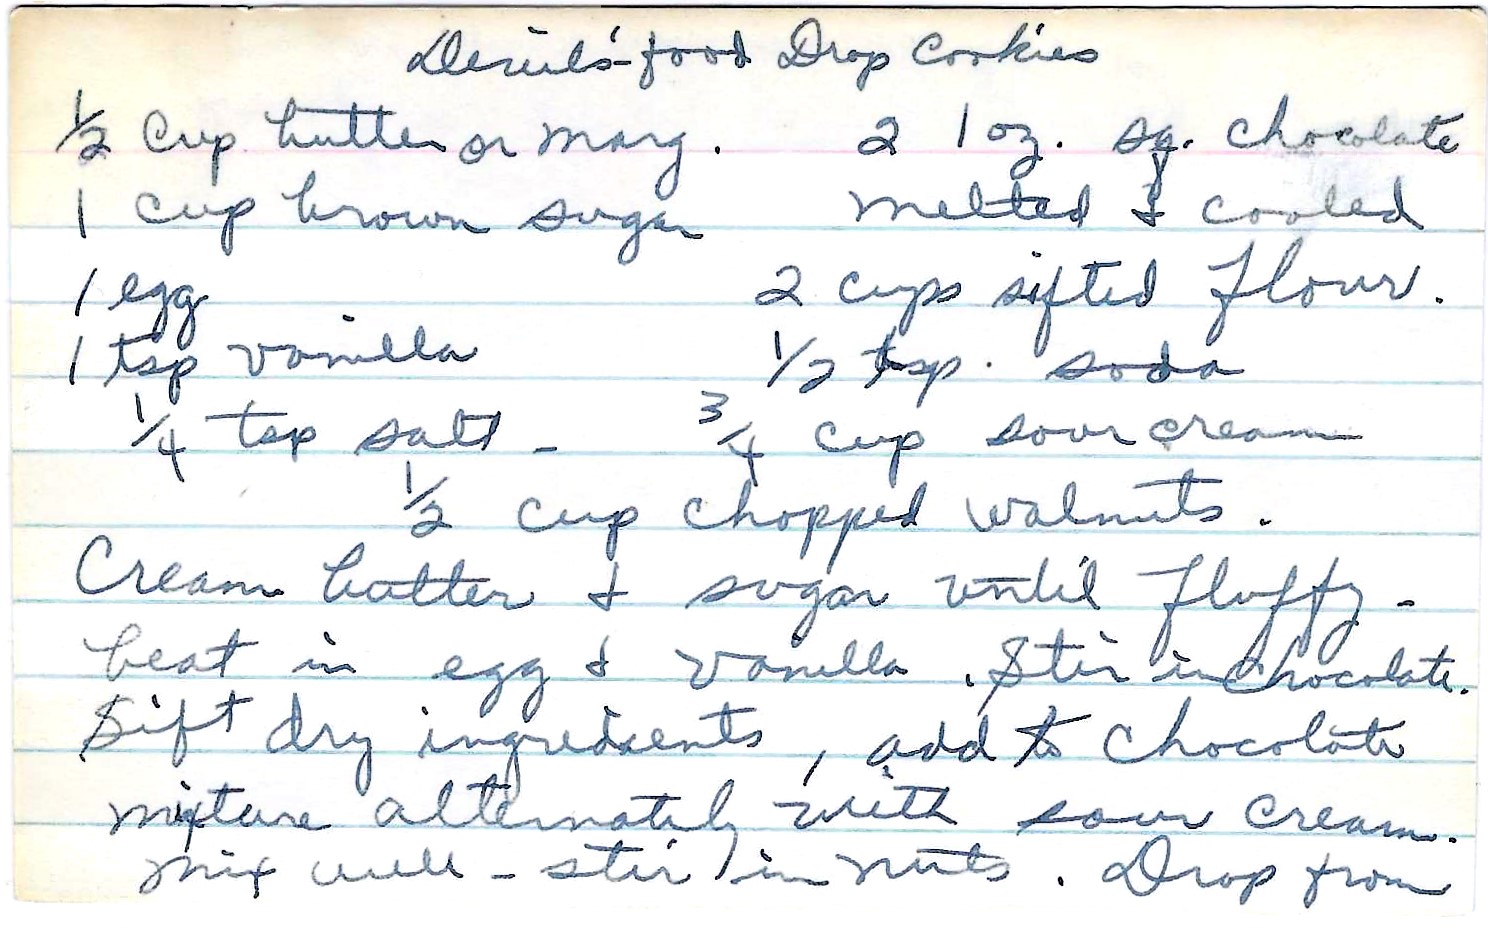 Devil's-food Drop Cookies
½ cup butter or marg. 2 1 oz. sq. chocolate
1 cup brown sugar melted & cooled
1 egg 2 cups sifted flour.
1 tsp vanilla ½ tsp. soda
¼ tsp salt - ¾ cup sour cream
½ cup chopped walnuts.
Cream butter & sugar until fluffy -
beat in egg & vanilla. Stir in chocolate.
Sift dry ingredients, add to chocolate
mixture alternately with sour cream.
mix well - stir in nuts. Drop from